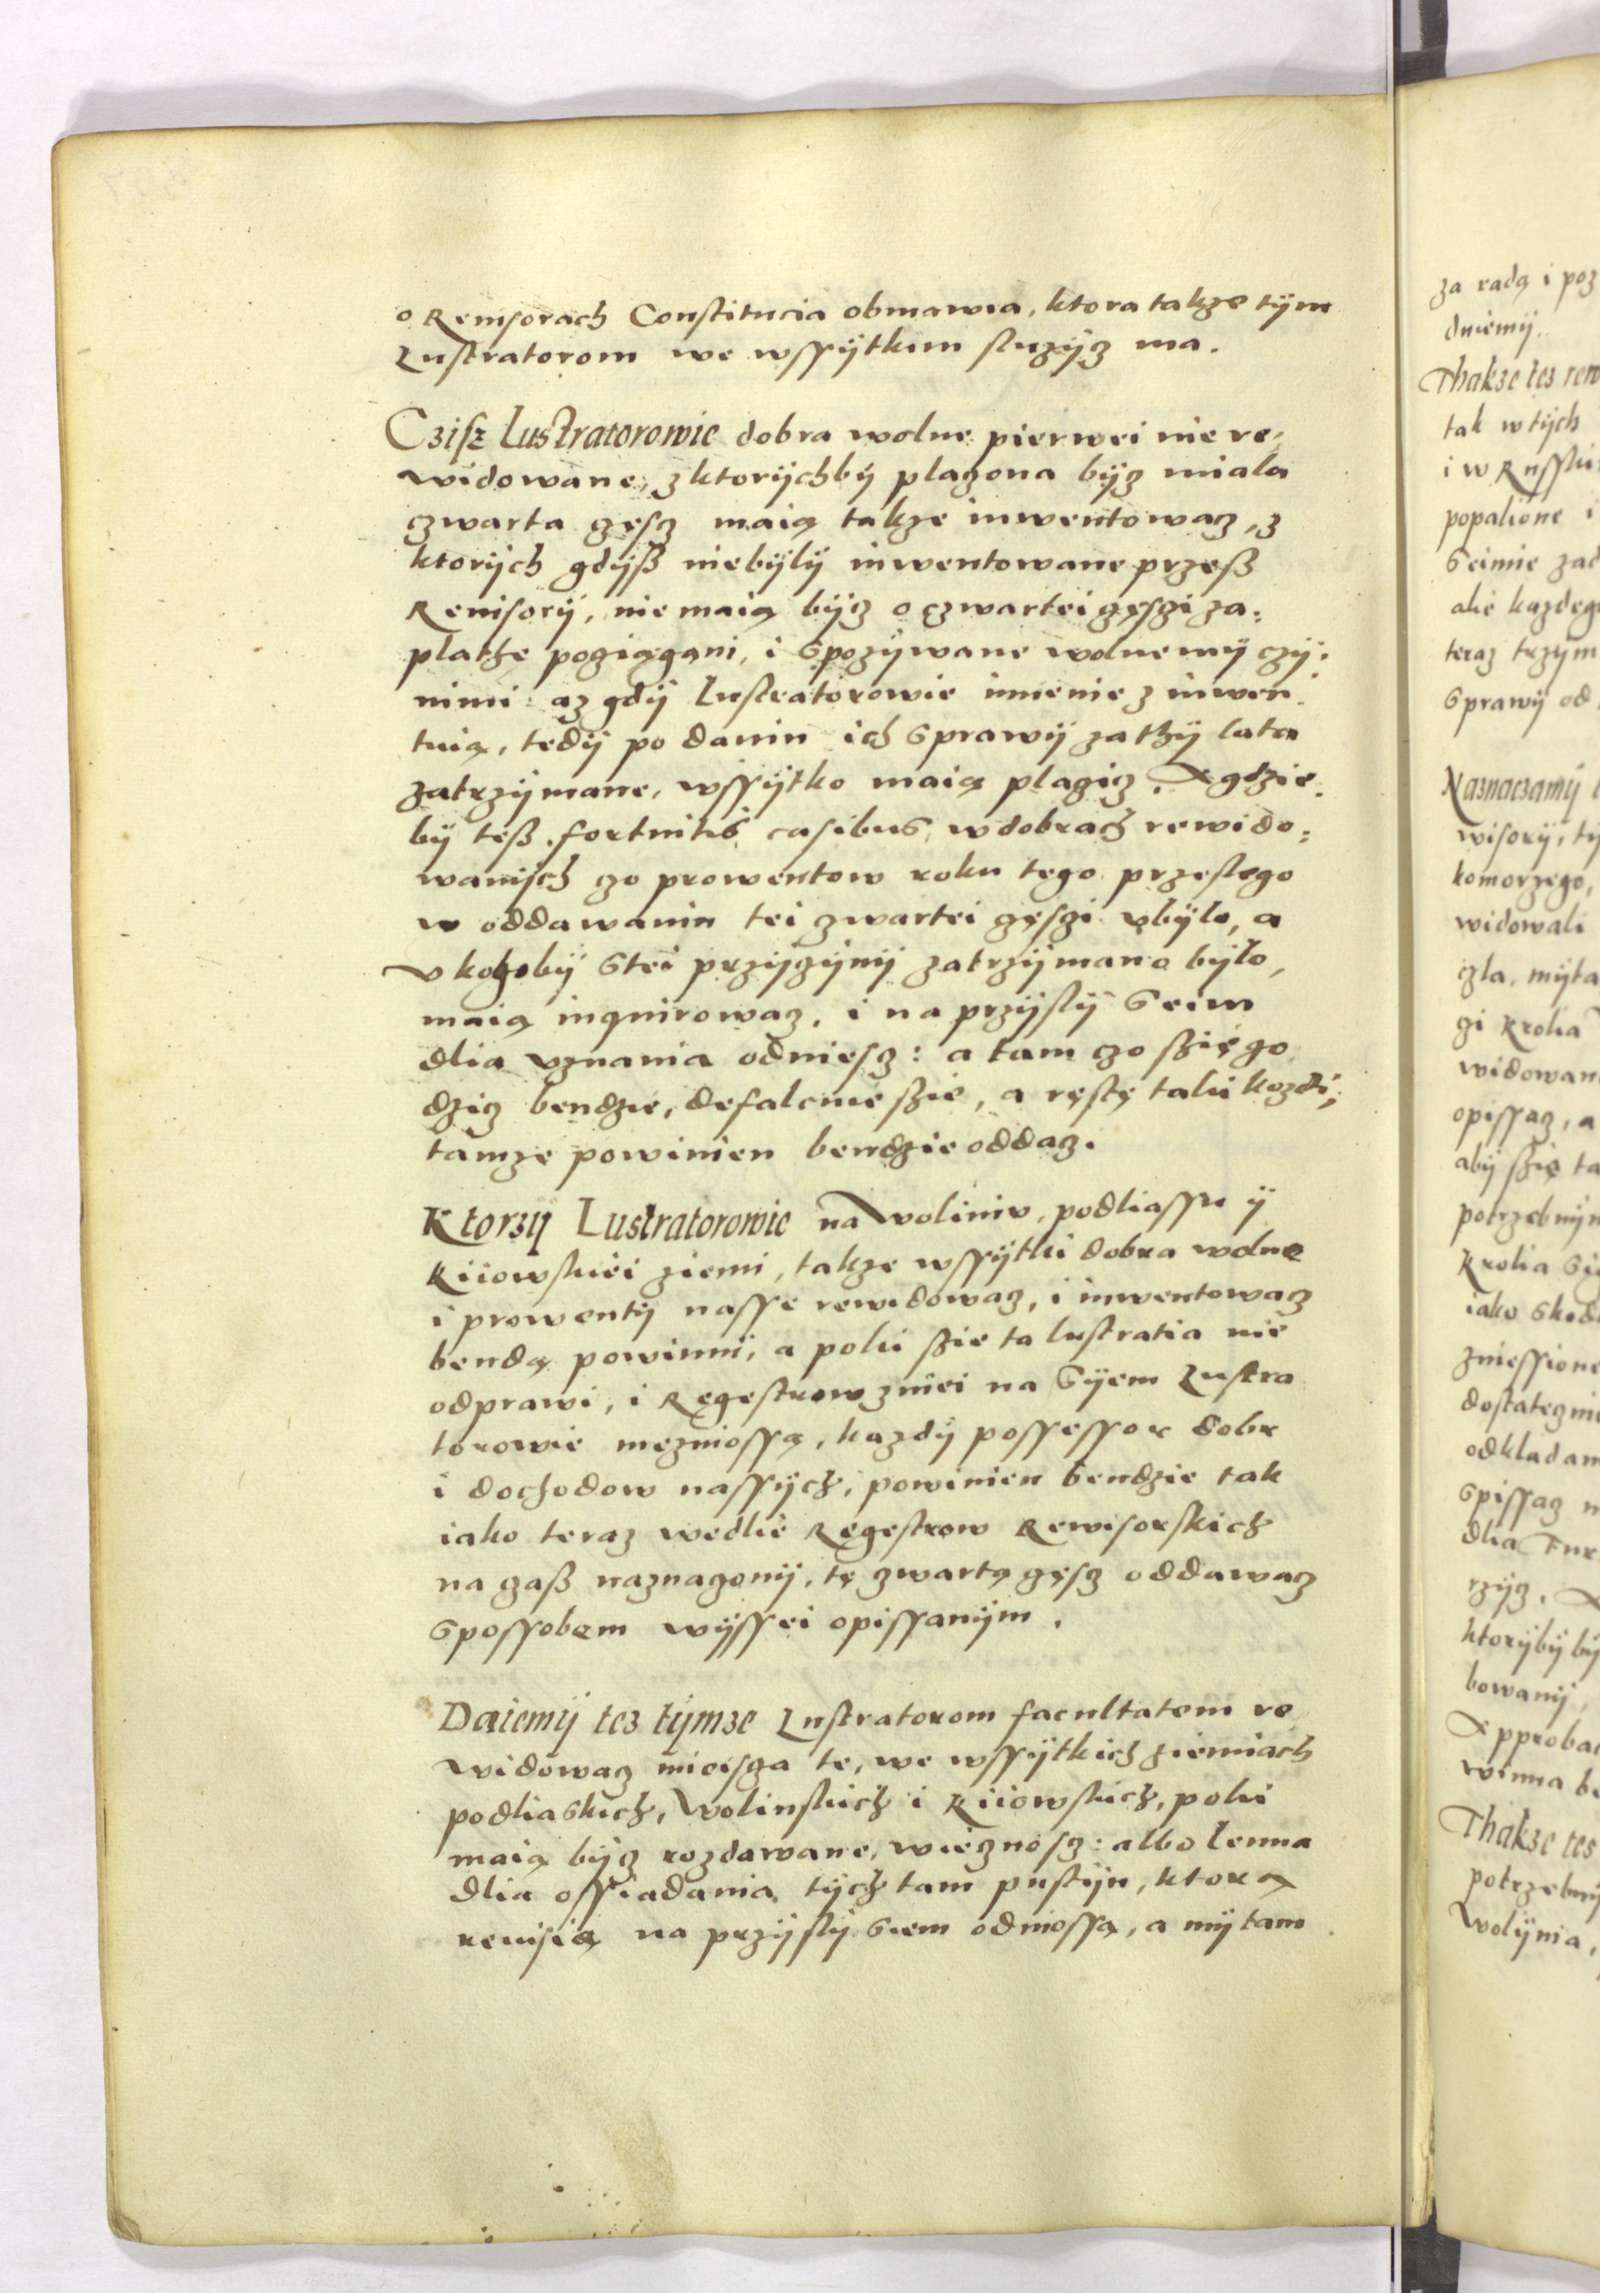 o Reuisorach Constitucia obmawia, ktora takze tÿm
Lustratorom we wssÿtkim sluzÿcz ma.
Czisz Lustratorowie dobra wolne pierwei nie re-
widowane, z ktorÿchbÿ placzona bÿcz miala
czwarta częscz maią takze inwentowacz, z
ktorÿch gdÿß niebÿlÿ inwentowane przeß
Reuisorÿ, nie maią bÿcz o czwartei częsczi za-
platżę pociągani, i spozÿwane wolnemÿ czÿ-
nimi: az gdÿ Lustratorowie imienie z inwen-
tuią, tedÿ po daniu ich sprawÿ za tżÿ lata
zatrzÿmane, wssÿtko maią placicz. A gdzie-
bÿ teß fortuitis casibus w dobrach rewido-
wanÿch czo prowentow roku tego przeslego
w oddawaniu tei czwartei częsczi vbÿlo, a
v kogobÿ s tei przÿczÿnÿ zatrzÿmano bÿlo,
maią inquirowacz, i na przÿslÿ Seim
dlia vznania odniescz: a tam czo szię go
dzicz bendzie, defalcuie szie, a restę taki kozdi,
tamze powinien bendzie oddacz.
Ktorzÿ Lustratorowie na Woliniv, podliassu ÿ
Kiiowskiei ziemi, takze wssÿtki dobra wolne
i prowentÿ nasse rewidowacz, i inwentowacz
bendą powinni, a poki szie ta lustratia nie
odprawi, i Regestrow zniei na Sÿem Lustra
torowie niezniossą, kazdÿ possessor dobr
i dochodow nassÿch, powinien bendzie tak
iako teraz wedlie Regestrow Rewisorskich
na czaß naznaczonÿ, tę czwartą częscz oddawacz
spossobem wÿssei opissanÿm.
Daiemÿ tez tÿmze Lustratorom facultatem re
widowacz mieisca te, we wssÿtkich ziemiach
podliaskich, Wolinskich i Kiiowskich, poki
maią bÿcz rozdawane, wiecznoscz: albo lenna
dlia ossiadania tÿch tam pustÿn, ktorą
reuisią na przÿslÿ siem odniossą, a mÿ tam
za radą i poz
dniemÿ.
Thakze tez rew
tak w tÿch
i w Russki
popalione i
Seimie zac
alie kazdeg
teraz trzÿm
sprawÿ od
Naznaczamÿ l
wisorÿ, tÿ
komorzego,
widowali
czla, mÿta
czi krolia
widowan
opissacz, a
abÿ szię ta
potrzebnÿn
Krolia
iako skod
zniessione
dostateczni
odkladam
spissacz n
dlia Tur
rzÿcz.
ktorÿbÿ bÿ
bowanÿ,
Approbac
winna be
Thakze tes
potrzebnÿ
Wolÿnia,